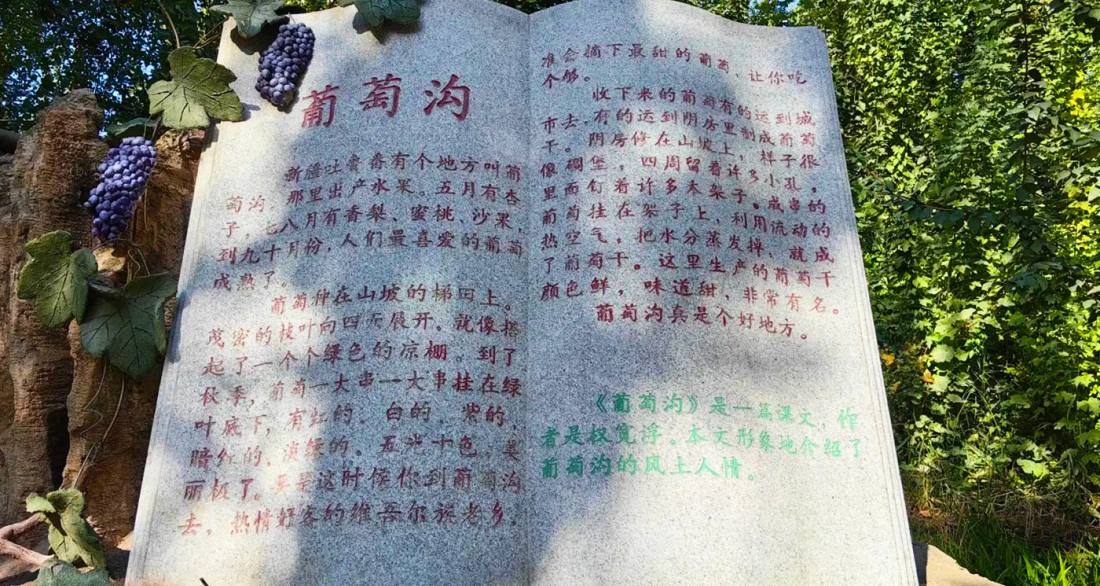 葡萄沟
新疆吐鲁番有个地方叫葡
萄沟。那里出产水果。五月有杏
子,七八月有香梨、蜜桃、沙果,
到九十月份,人们最喜爱的葡萄
成熟了。
葡萄种在山坡的梯田上。
茂密的枝叶向四面展开,就像搭
起了一个个绿色的凉棚。到了
秋季,葡萄一大串一大串挂在绿
叶底下,有红的、白的、紫的、
暗红的、淡绿的,五光十色,美
丽极了。要是这时候你到葡萄沟
去,热情好客的维吾尔族老乡,
准会摘下最甜的葡萄,让你吃
个够。
收下来的葡萄有的运到城
市去,有的运到阴房里制成葡萄
干。阴房修在山坡上,样子很
像碉堡,四周留着许多小孔,
里面钉着许多木架子。成串的
葡萄挂在架子上,利用流动的
热空气,把水分蒸发掉,就成
了葡萄干。这里生产的葡萄干
颜色鲜,味道甜,非常有名。
葡萄沟真是个好地方。
《葡萄沟》是一篇课文,作
者是权宽浮。本文形象地介绍了
葡萄沟的风土人情。